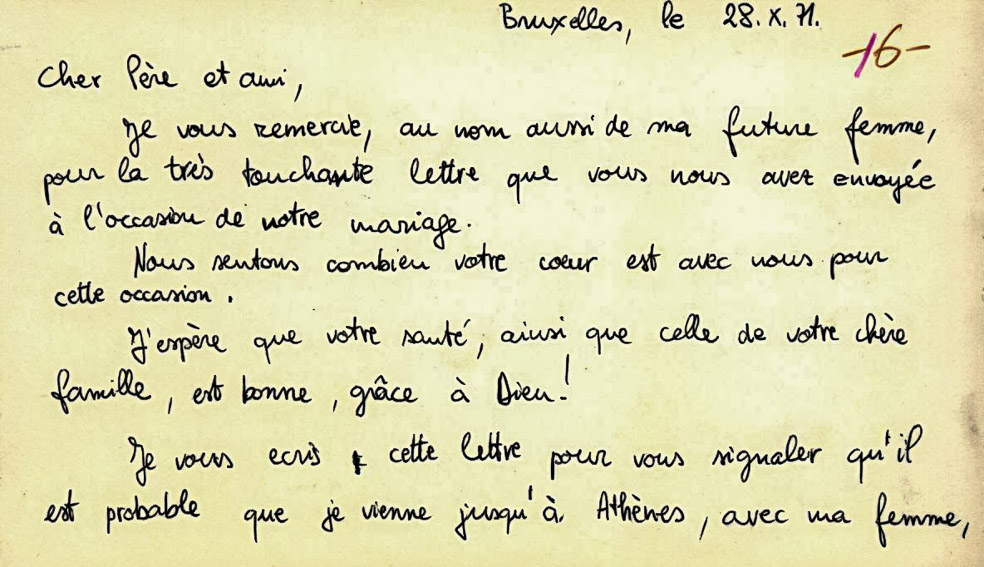 Bruxelles, le 28.X.71.
-16-
Cher Père et ami,
Je vous remercie, au nom aussi de ma future femme,
pour la très touchante lettre que vous nous avez envoyée
à l'occasion de notre mariage.
Nous sentons combien votre coeur est avec nous pour
cette occasion.
J'espère que votre santé, ainsi que celle de votre chère
famille, est bonne, grâce à Dieu!
Je vous ecris cette lettre pour vous signaler qu'il
est probable que je vienne jusqu'à Athènes, avec ma femme,